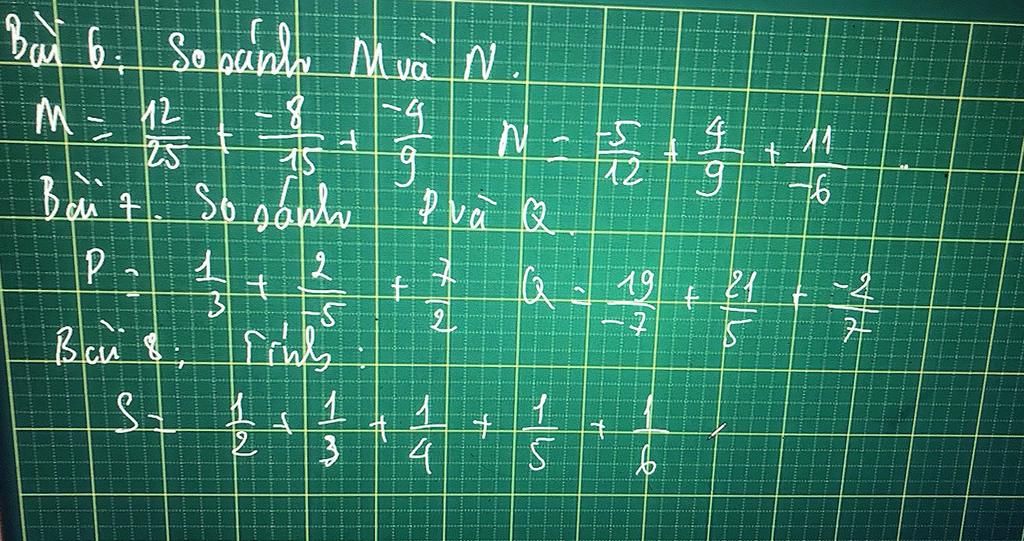 Bài 6: So sánh M và N.
M = 12/25 + -8/15 + -4/9 N = -5/12 + 4/9 + 11/-6.
Bài 7. So sánh P và Q.
P = 1/3 + 2/-5 + 7/2 Q = 19/-7 + 21/5 + -2/7
Bài 8: Tính:
S = 1/2 + 1/3 + 1/4 + 1/5 + 1/6.